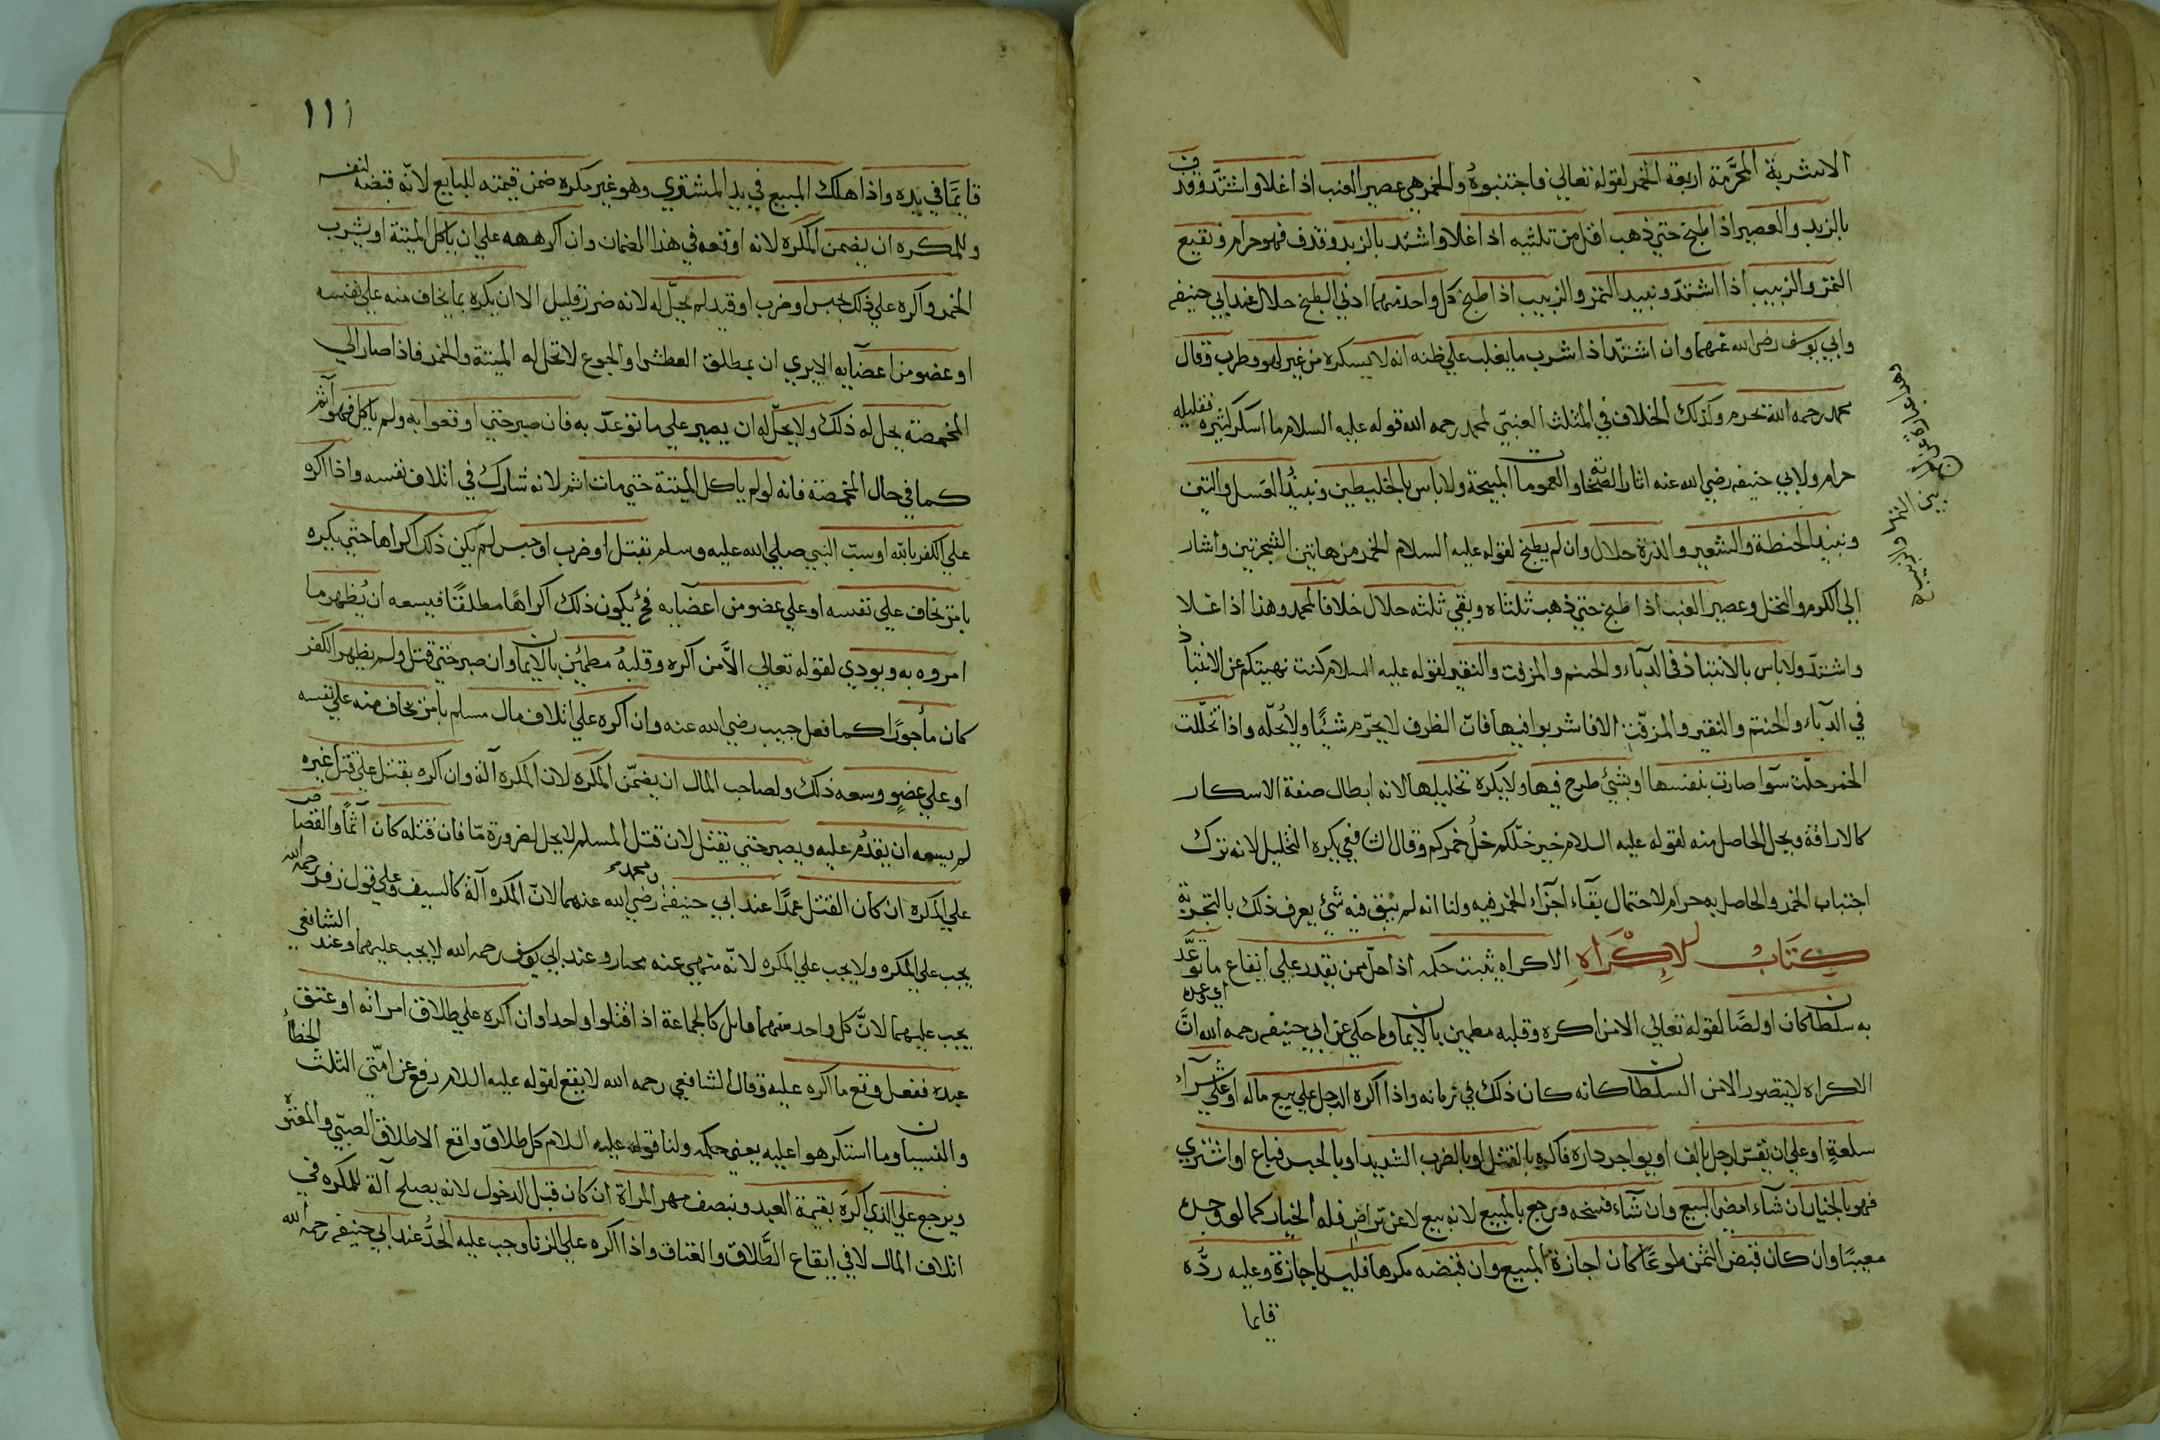 الاشربة المحرَّمة اربعة الخمر لقوله تعالي فاجتنبوهُ والخمر هي عصير العنب اذا غلا واشتدّ وقذف
بالزبد والعصير اذا طبخ حتي ذهب اقل من ثلثيه اذا غلا واشتد بالزبد وقذف فهو حرام ونقيع
التمر والزبيب اذا اشتدّ ونبيد التمر والزبيب اذا طبخ كل واحد منهما ادني الطبخ حلال عند ابي حنيفه
وابي يوسف رضي الله عنهما وان اشتدّ اذا شرب ما يغلب علي ظنه انه لا يسكره من غير لهو وطرب وقال
محمد رحمه الله تحرم وكذلك الخلاف في المثلث العنبيّ لمحمد رحمه الله قوله عليه السلام ما اسكر كثيره فقليله
حرام ولابي حنيفه رضي الله عنه اثار الصحابه والعمومات المبيحة ولا باس بالخليطين ونبيدُ العَسل والتين
ونبيد الحنطة والشعير والذرة حلال وان لم يطبخ لقوله عليه السلام الخمر من هاتين الشجرتين واشار
الي الكرم والنخل وعصير العنب اذا طبخ حتي ذهب ثلثاه وبقي ثلثه حلال خلافا لمحمد وهذا اذا غلا
واشتدّ ولا باس بالانتباذ في الدبآء والحنتم والمزفت والنقير لقوله عليه السلام كنت نهيتكم عن الانتباذ
في الدبآء والحنتم والنقير والمزفّت الا فاشربوا فيها فانّ الظرف لا يحرّم شيئًا ولا يُحلّه واذا تخلّلت
الخمر حلّت سوآ صارت بنفسها او بشئ طرح فيها ولا يكره تخليلها لانه ابطال صفة الاسكار
كالاراقة ويحل الحاصل منه لقوله عليه السلام خير خلّكم خلُ خمركم وقال الشافعي يكره التخليل لانه ترك
اجتناب الخمر والحاصل به حرام لاحتمال بقآء اجزآء الخمر فيه ولنا انه لم يبق فيه شئ يعرف ذلك بالتجربة
كتابُ الاِكْراهِ الاكراه يثبت حكمه اذا حلّ ممن يقدر علي ايقاع ما توعَّد
اي وعده
به سلطان كان او لصًا لقوله تعالي الا من اكره وقلبه مطمين بالايمان وما حكي عن ابي حنيفه رحمه الله انَّ
الاكراه لا يتصور الا من السلطان كانه كان ذلك في زمانه واذا اكره الرجل علي بيع ماله او علي شرآء
سلعةٍ او علي ان يقرّ لرجل بالف او يواجر داره فاكره بالقتل او بالضرب الشديد او بالحبس فباع او اشتري
فهو بالخيار ان شآء امضي البيع وان شآء فسخه ويرجع بالمبيع لانه بيع لا عن تراضٍ فله الخيار كما لو وجده
معيبًا وان كان قبض الثمن طوعًا كان اجازة المبيع وان قبضه مكرها فليس باجازة وعليه ردُّه
قايما
بين التمر والزبيب
١١١
قايمًا في يده واذا هلك المبيع في يد المشتري وهو غير مكره ضمن قيمته للبايع لانّه قبضه لنفسه
وللمكره ان يضمن المكره لانه اوقعه في هذا الضمان وان اكرهه علي ان ياكل الميتة او يشرب
الخمر واكره علي ذلك بحبس او ضرب او قيد لم يحلّ له لانه ضرر قليل الا ان يكره بما يخاف منه علي نفسه
او عضو من اعضآيه الا يري ان بمطلق العطش والجوع لا تحل له الميتة والخمر فاذا صار الي
المخمصة يحل له ذلك ولا يحلّ له ان يصبر علي ما توعدّ به فان صبر حتي اوقعوا به ولم ياكل فهو آثم
كما في حال المخمصة فانه لو لم ياكل الميتة حتي مات اثم لانه شارك في اتلاف نفسه واذا اكره
علي الكفر بالله او سبّ النبي صلي الله عليه وسلم بقتل او ضرب او حبس لم يكن ذلك اكراها حتي يكره
بامر يخاف علي نفسه او علي عضو من اعضآيه فح يكون ذلك اكراهًا مطلقًا فيسعه ان يُظهر ما
امروه به ويودي لقوله تعالي الاَّ من اكره وقلبهُ مطمئن بالايمان وان صبر حتي قتل ولم يظهر الكفر
كان مأجورًا كما فعل حبيب رضي الله عنه وان اكره علي اتلاف مال مسلم بامر يخاف منه علي نفسه
او علي عضوٍ وسعه ذلك ولصاحب المال ان يضمّن المكره لان المكره آلة وان اكره بقتل علي قتل غيره
لم يسعه ان يقدُم عليه ويصبر حتي يقتل لان قتل المسلم لا يحل لضرورة مّا فان قتله كان آثمًا والقصاص
علي المكره ان كان القتل عمدًا عند ابي حنيفة ومحمد رضي الله عنهما لانّ المكره آلة كالسيف وعلي قول زفر رحمه الله
يجب علي المكره ولا يجب علي المكره لانّه منهي عنه مختار وعند ابي يوسف رحمه الله لا يجب عليهما وعند الشافعي
يجب عليهما لانّ كل واحد منهما قاتل كالجماعة اذا قتلوا واحدا وان اكره علي طلاق امراته او عتق
عبده ففعل وقع ما اكره عليه وقال الشافعي رحمه الله لا يقع لقوله عليه السلام رفع عن امّتي الثلث الخطأ
والنسيان وما استكرهوا عليه يعني حكمه ولنا قوله عليه السلام كل طلاق واقع الا طلاق الصبيّ والمعتوه
ويرجع علي الذي اكرَه بقيمة العبد ونصف مهر المراة ان كان قبل الدخول لانه يصلح آلة للمكره في
اتلاف المال لا في ايقاع الطَّلاق والعتاق واذا اكره علي الزنا وجب عليه الحدُّ عند ابي حنيفه رحمه الله